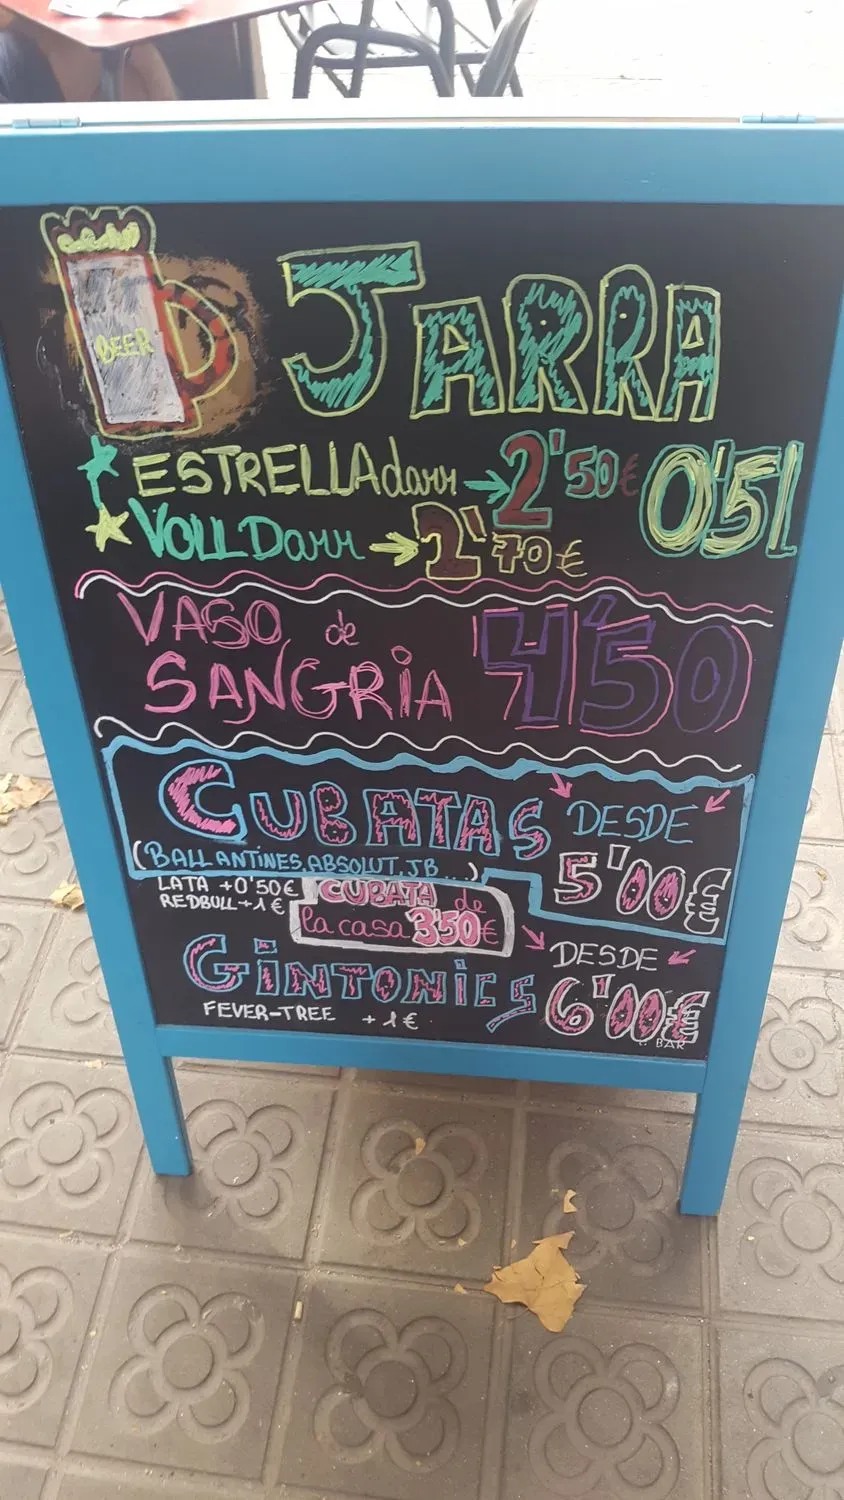 BEER
JARRA
ESTRELLA damm → 2'50€ 0'5l
VOLLDamm → 2'70€
VASO de
SANGRIA 4'50
CUBATAS DESDE
(BALLANTINES, ABSOLUT, JB...) 5'00€
LATA +0'50€
REDBULL +1€
CUBATA de
la casa 3'50€
GINTONICS DESDE
FEVER-TREE +1€ 6'00€
BAR